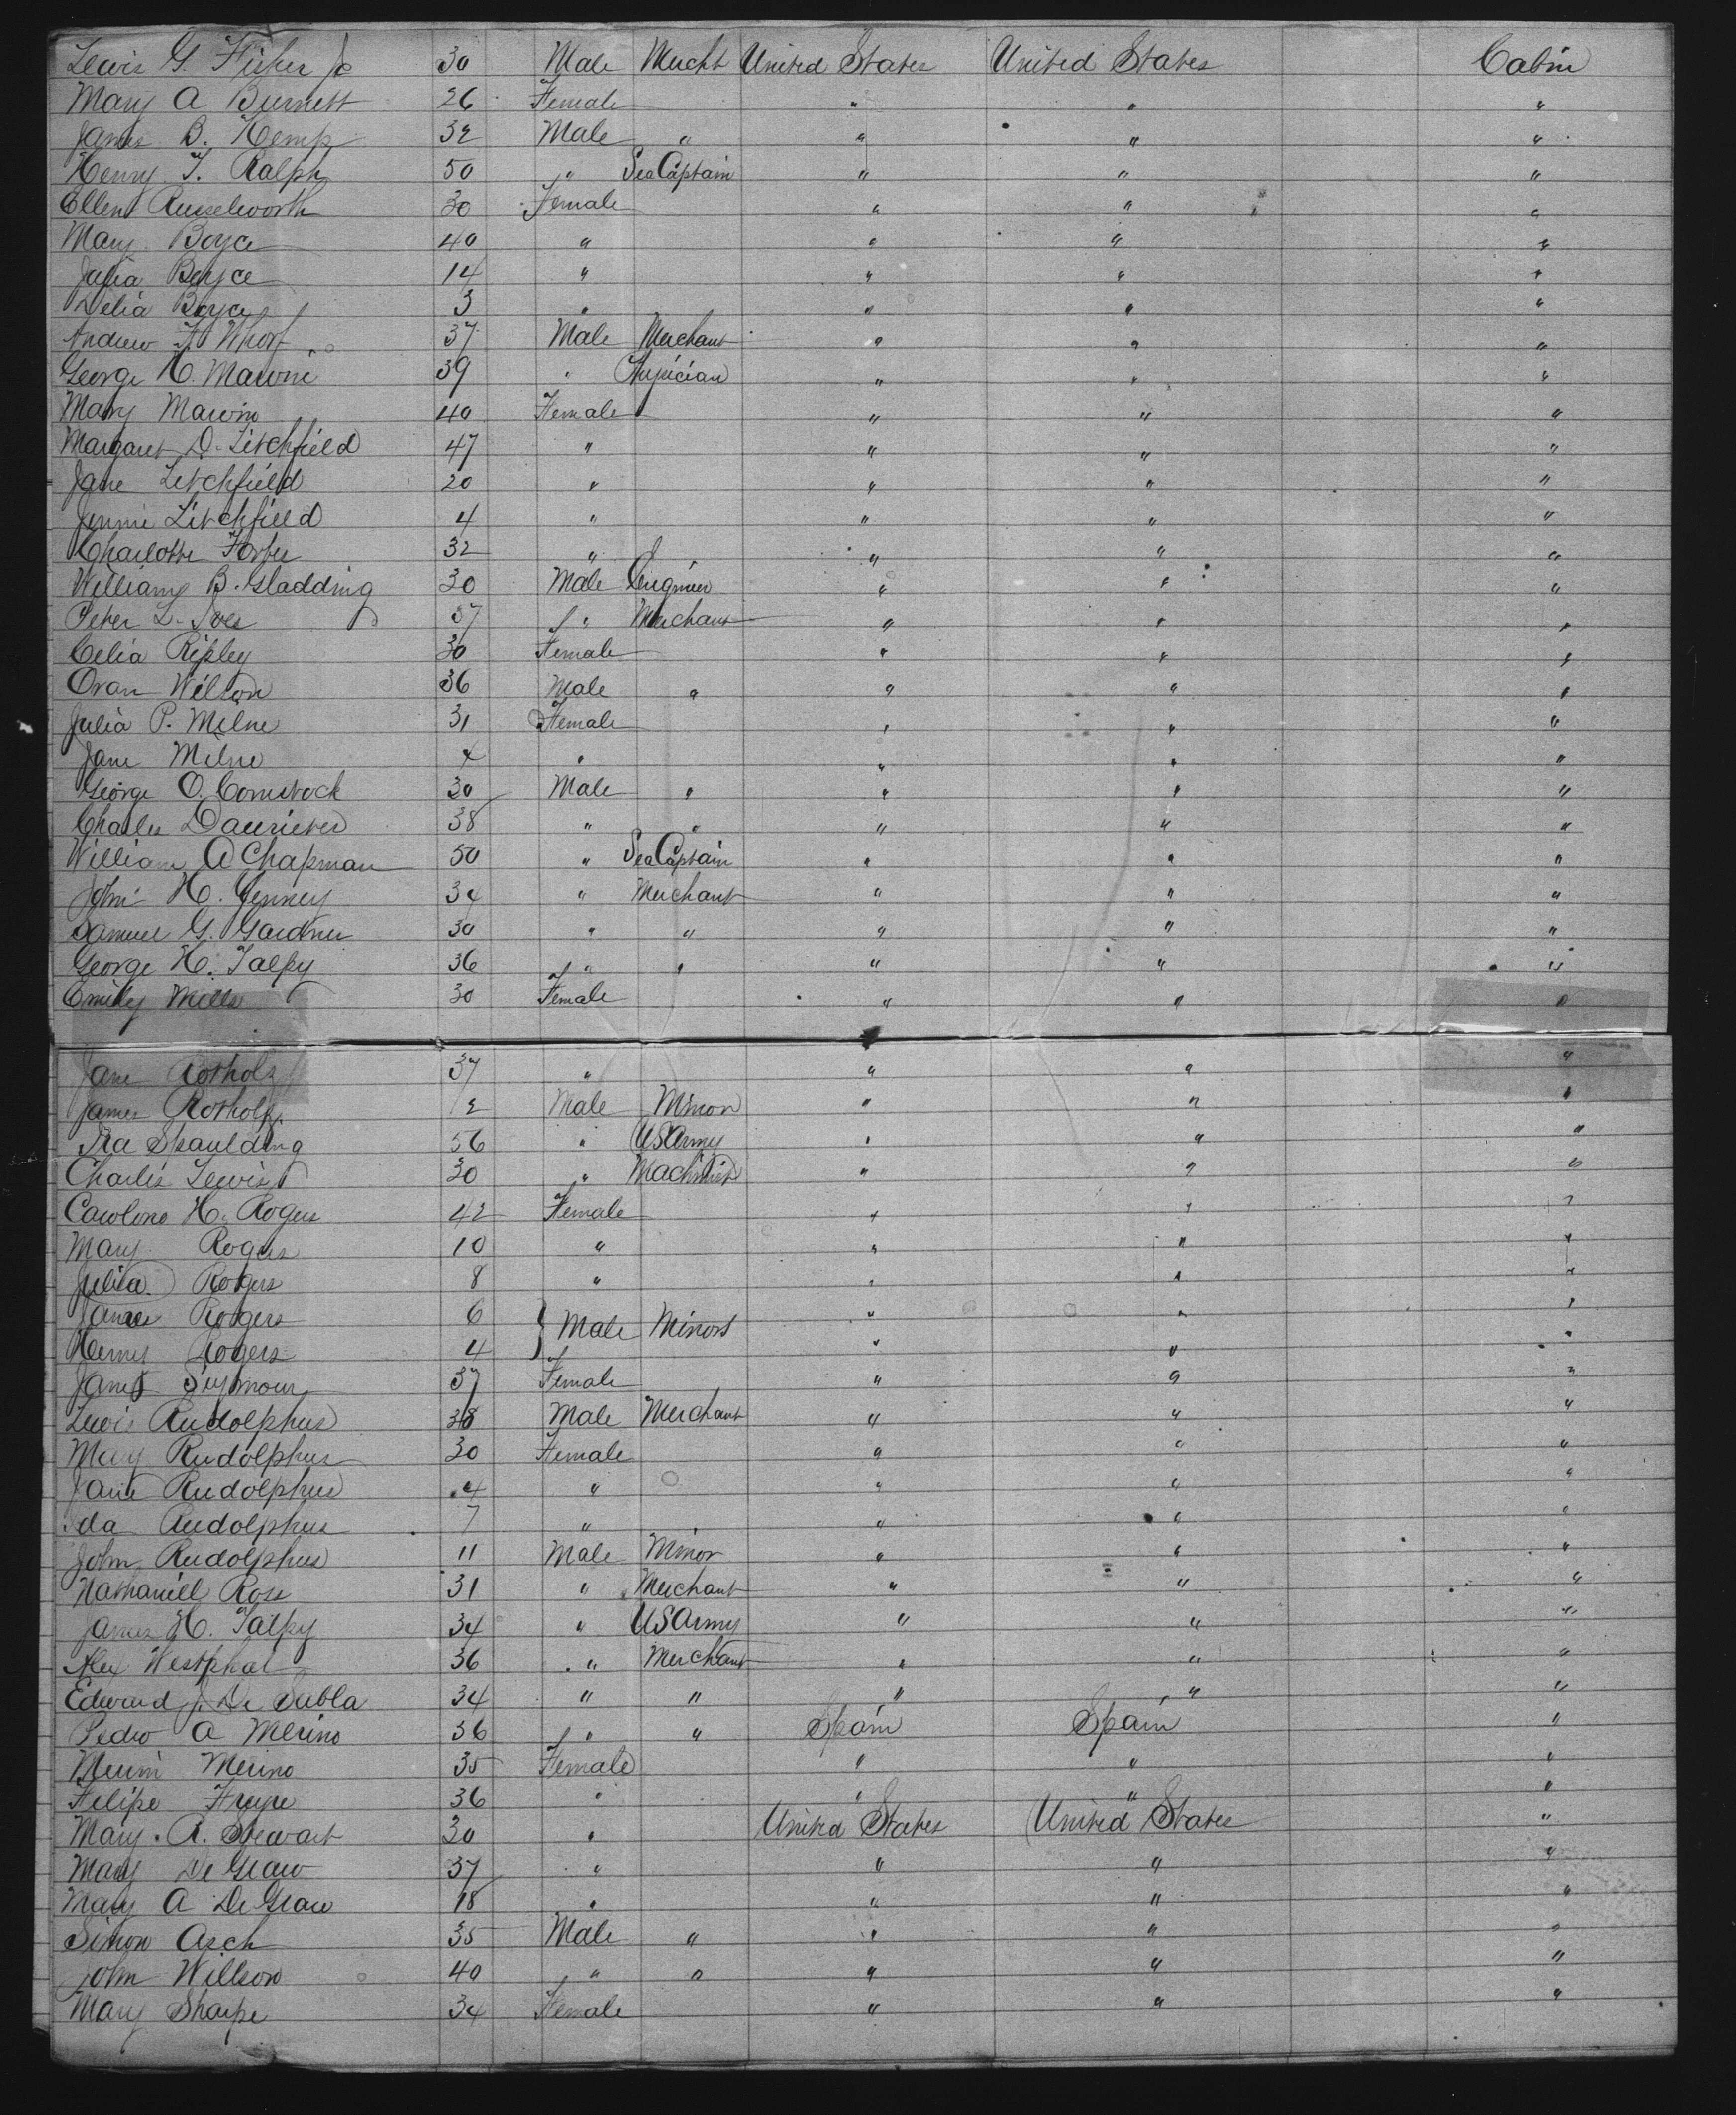 Lewis G. Fisher Jr 30 Male Mercht United States United States Cabin
Mary A Burnett 26 Female " " "
James B. Kemp 32 Male " " " "
Henry T. Ralph 50 " Sea Captain " " "
Ellen 30 Female " " "
Mary Boyce 40 " " " "
Julia Boyce 14 " " " "
Delia Boyce 3 " " " "
Andrew 37 Male Merchant " " "
George H. 39 " Physician " " "
Mary Marvin 40 Female " " "
Margaret D. Litchfield 47 " " " "
Jane Litchfield 20 " " " "
Jennie Litchfield 4 " " " "
Charlotte 32 " " " "
William B. Gladding 30 Male Engineer " " "
Peter L. Ives 37 " Merchant " " "
Celia Ripley 30 Female " " "
Oran Wilson 36 Male " " " "
Julia P. Milne 31 Female " " "
Jane Milne 4 " " " "
George O. Comstock 30 Male " " " "
Charles 38 " " " " "
William A Chapman 50 " Sea Captain " " "
John H. 34 " Merchant " " "
Samuel G. Gardner 30 " " " " "
George H. Talpy 36 " " " " "
Emily Mills 30 Female " " "
Jane Rotholz 37 " " " "
James Rotholz 12 Male Minor " " "
Ira Spaulding 56 " US Army " " "
Charles Lewis 30 " Machinist " " "
Caroline H. Rogers 42 Female " " "
Mary Rogers 10 " " " "
Julia Rogers 8 " " " "
James Rogers 6 } Male Minors " " "
Henry Rogers 4 " " "
Jane Seymour 37 Female " " "
Lewis Rudolphus 38 Male Merchant " " "
Mary Rudolphus 30 Female " " "
Jane Rudolphus 4 " " " "
Ida Rudolphus 7 " " " "
John Rudolphus 11 Male Minor " " "
Nathaniell Ross 31 " Merchant " " "
James H. Talpy 34 " US Army " " "
Alex Westphal 36 " Merchant " " "
Edward J. De Sabla 34 " " " " "
Pedro A Merino 36 " " Spain Spain "
Merino 35 Female " " "
Filipe 36 " " " "
Mary. A. Stewart 30 " United States United States "
Mary De Graw 37 " " " "
Mary A De Graw 18 " " " "
Simon Asch 35 Male " " " "
John Willson 40 " " " " "
Mary Sharpe 34 Female " " "